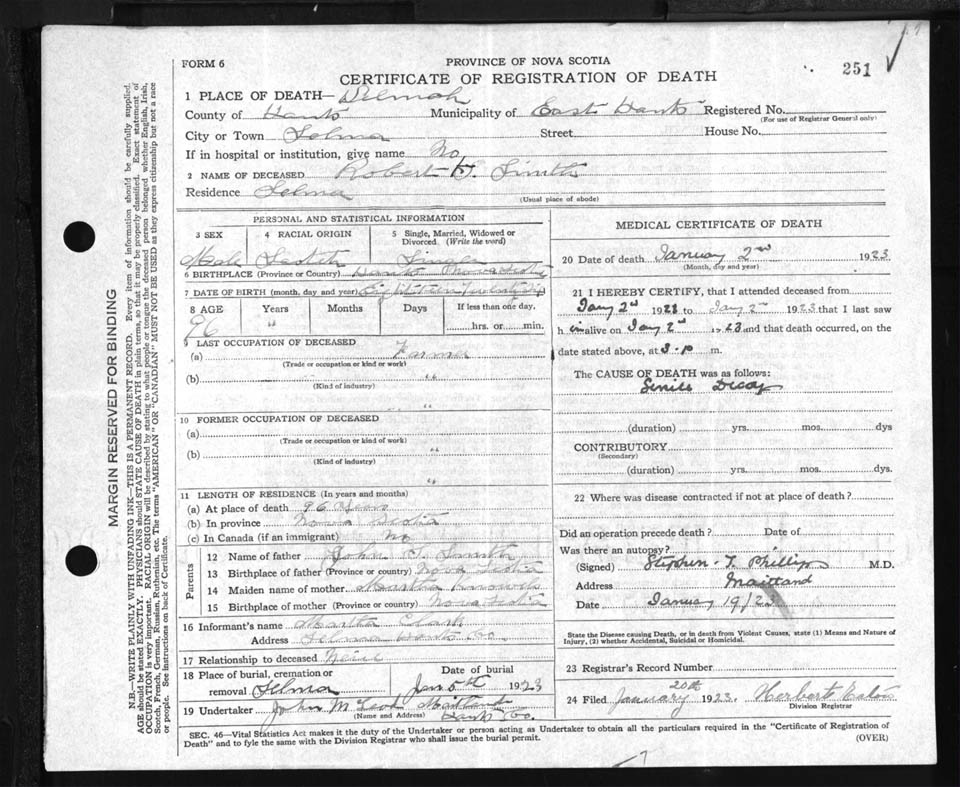 FORM 6
PROVINCE OF NOVA SCOTIA
CERTIFICATE OF REGISTRATION OF DEATH
251
1 PLACE OF DEATH— Selmah
County of Hants Municipality of East Hants Registered No.
(For use of Registrar General only)
City or Town Selma Street House No.
If in hospital or institution, give name No
2 NAME OF DECEASED Robert Smith
Residence Selma
(Usual place of abode)
PERSONAL AND STATISTICAL INFORMATION
3 SEX 4 RACIAL ORIGIN 5 Single, Married, Widowed or Divorced. (Write the word)
Male Scotch Single
6 BIRTHPLACE (Province or Country) Hants Nova Scotia
7 DATE OF BIRTH (month, day and year)
8 AGE Years Months Days If less than one day,
96 " hrs. or min.
9 LAST OCCUPATION OF DECEASED
(a) Farmer
(Trade or occupation or kind or work)
(b) "
(Kind of industry)
"
10 FORMER OCCUPATION OF DECEASED
(a)
(Trade or occupation or kind of work)
(b) "
(Kind of industry)
"
11 LENGTH OF RESIDENCE (In years and months)
(a) At place of death 96 years
(b) In province Nova Scotia
(c) In Canada (if an immigrant) No
Parents
12 Name of father John Smith
13 Birthplace of father (Province or country) Nova Scotia
14 Maiden name of mother Martha
15 Birthplace of mother (Province or country) Nova Scotia
16 Informant's name Martha Clark
Address Selma Hants Co
17 Relationship to deceased
18 Place of burial, cremation or removal Selma
Date of burial Jan 5th 1923
19 Undertaker John Maitland
(Name and Address) Hants Co.
MEDICAL CERTIFICATE OF DEATH
20 Date of death January 2nd 1923
(Month, day and year)
21 I HEREBY CERTIFY, that I attended deceased from
Jany 2nd 1923 to Jany 2nd 1923 that I last saw
h im alive on Jany 2nd 1923 and that death occurred, on the
date stated above, at 3-p m.
The CAUSE OF DEATH was as follows:
Senile Decay
(duration) yrs. mos. dys
CONTRIBUTORY
(Secondary)
(duration) yrs. mos. dys.
22 Where was disease contracted if not at place of death?
Did an operation precede death? Date of
Was there an autopsy?
(Signed) Stephen T. Phillips M.D.
Address Maitland
Date January 19/23
State the Disease causing Death, or in death from Violent Causes, state (1) Means and Nature of
Injury, (2) whether Accidental, Suicidal or Homicidal.
23 Registrar's Record Number
24 Filed January 20th 1923. Herbert
Division Registrar
SEC. 46—Vital Statistics Act makes it the duty of the Undertaker or person acting as Undertaker to obtain all the particulars required in the "Certificate of Registration of
Death" and to fyle the same with the Division Registrar who shall issue the burial permit.
(OVER)
MARGIN RESERVED FOR BINDING
N.B.—WRITE PLAINLY WITH UNFADING INK—THIS IS A PERMANENT RECORD. Every item of information should be carefully supplied.
AGE should be stated EXACTLY. PHYSICIANS should STATE CAUSE OF DEATH in plain terms, so that it may be properly classified. Exact statement of
OCCUPATION is very important. RACIAL ORIGIN will be described by stating to what people or tongue the deceased person belonged whether English, Irish,
Scotch, French, German, Russian, Ruthenian, etc. The terms "AMERICAN" OR "CANADIAN" MUST NOT BE USED as they express citizenship but not a race
or people. See instructions on back of Certificate.